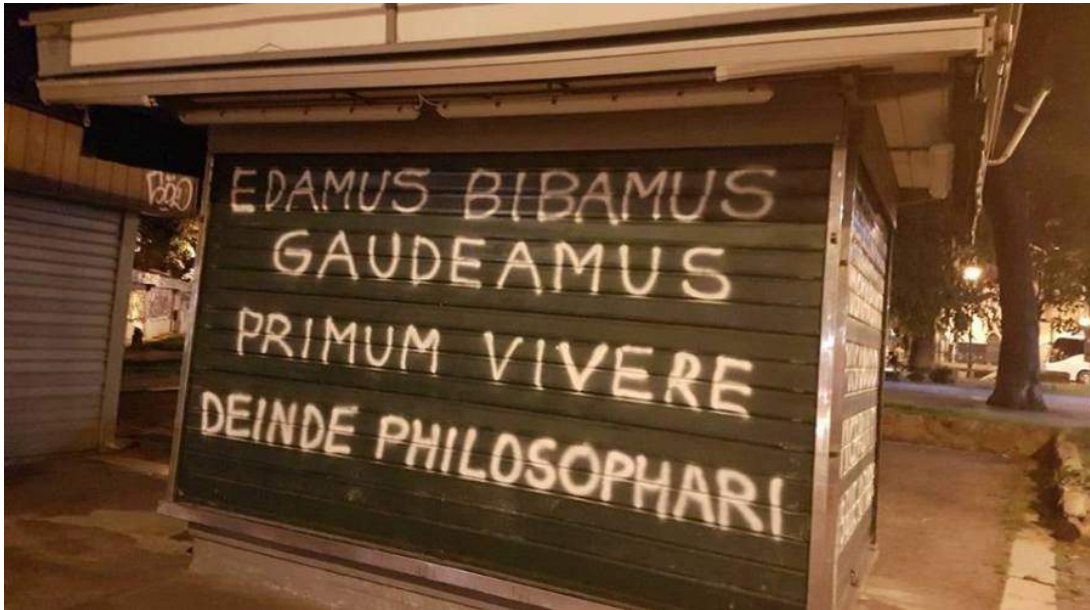 EDAMUS BIBAMUS
GAUDEAMUS
PRIMUM VIVERE
DEINDE PHILOSOPHARI